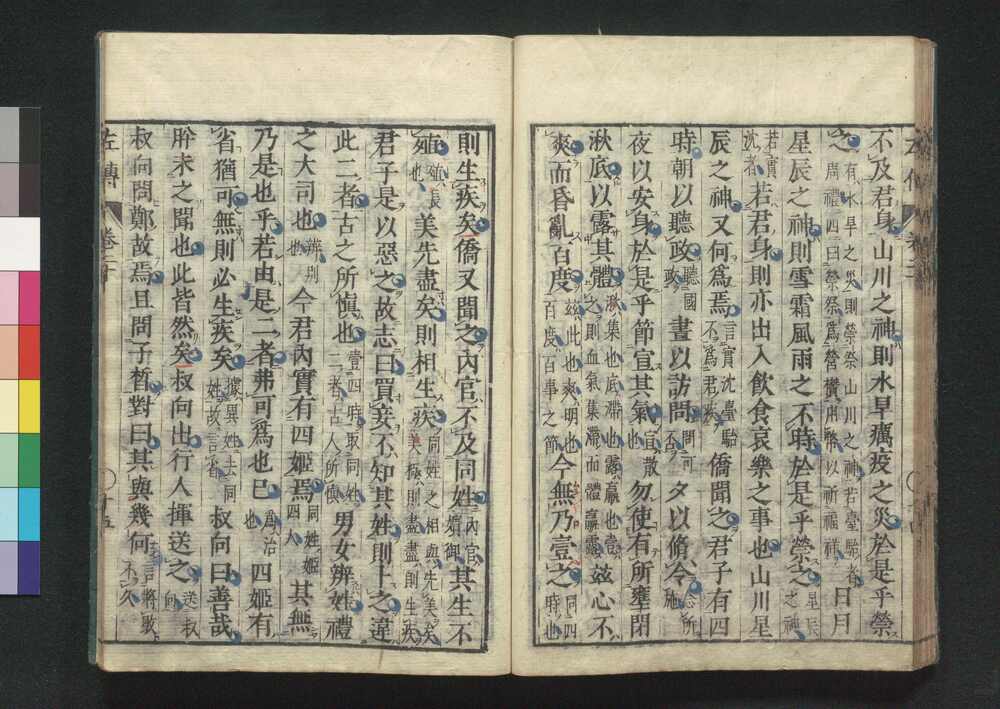 不及君身山川之神則水旱癘疫之災於是乎禜
之有水旱之災則禜祭山川之神若臺駘者周禮四曰禜祭爲營攢用幣以祈福祥日月
星辰之神則雪霜風雨之不時於是乎禜之星辰之神
若實沈者若君身則亦出入飲食哀樂之事也山川星
辰之神又何爲焉言實沈臺駘不爲君疾僑聞之君子有四
時朝以聽政聽國政晝以訪問問可否夕以脩令念所施
夜以安身於是乎節宣其氣宣散也勿使有所壅閉
湫底以露其體湫集也底滯也露羸也壹之則血氣集滯而體羸露玆心不
爽而昏亂百度玆此也爽明也百度百事之節今無乃壹之同四時也
則生疾矣僑又聞之內官不及同姓內官嬪御其生不
殖殖長也美先盡矣則相生疾同姓之相與先美矣美極則盡盡則生疾
君子是以惡之故志曰買妾不知其姓則卜之違
此二者古之所愼也壹四時取同姓二者古人所愼男女辨姓禮
之大司也辨別也今君內實有四姬焉同姓姬四人其無
乃是也乎若由是二者弗可爲也已爲治也四姬有
省猶可無則必生疾矣據異姓去同姓故言省叔向曰善哉
肸未之聞也此皆然矣叔向出行人揮送之送叔向
叔向問鄭故焉且問子晳對曰其與幾何言將敗不久
左傳
卷二十
十五